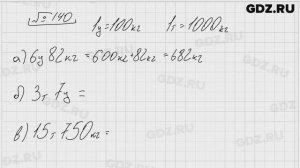 GDZ.RU
№ 140
1ц=100кг 1т=1000кг
а) 6ц 82кг = 600кг+82кг = 682кг
б) 3т 7ц =
в) 15т 750кг =